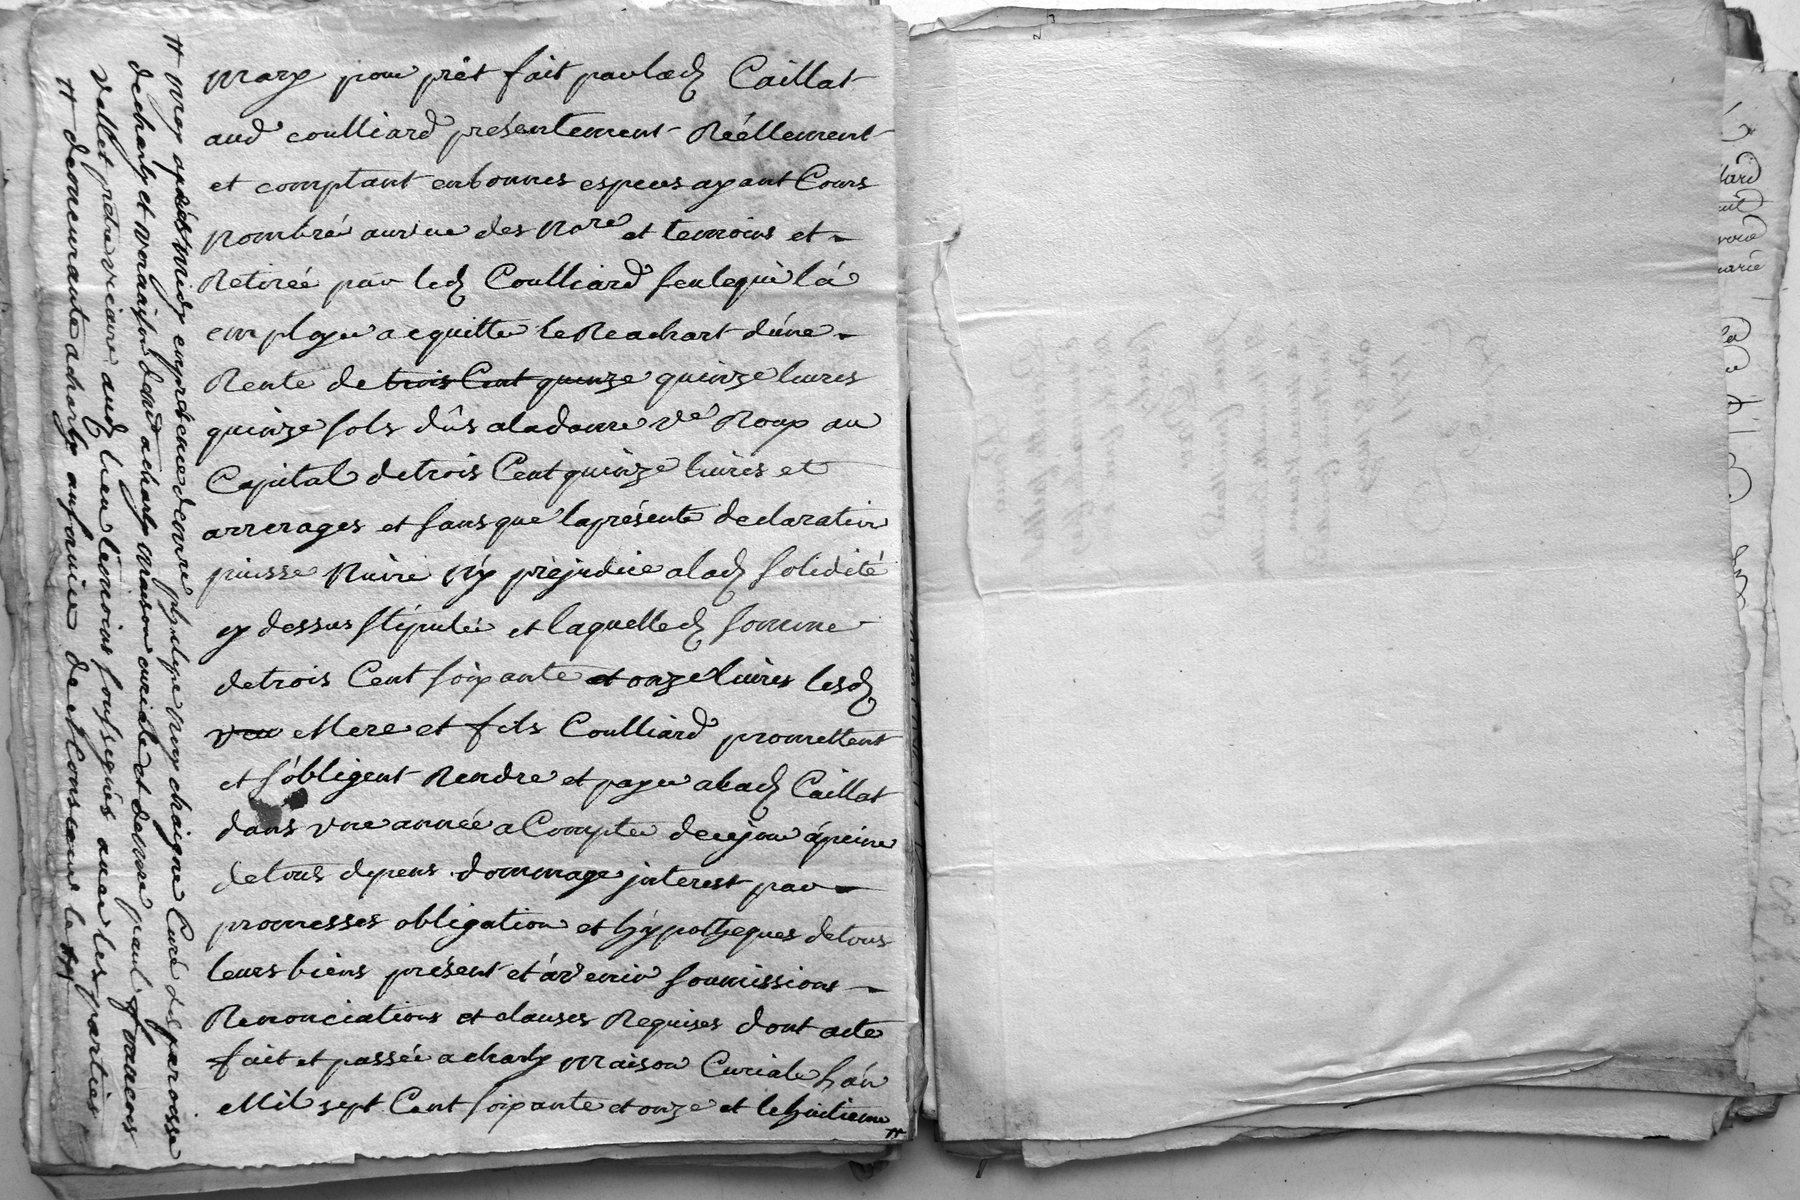 mary pour prét fait par lad Caillat
aud coulliard présentement Réellement
et comptant en bonnes especes ayant Cours
nombré auvue des Nore et temoins et
Retirée par led Coulliard seul equi la
employer acquitter le Reachart d'une
Rente de trois Cent quinze quinze livres
quinze sols dûs a la dame ve Roux au
Capital de trois Cent quinze livres et
arrerages et sans que la présente declaration
puisse Nuire Ny prejudice a lad solidité
cy dessus stipulée et laquelle d somme
de trois Cent soixante et onze livres lesd
veu Mere et fils Coulliard promettent
et s'obligent Rendre et payer a lad Caillat
dans vne année a Compter de ce jour á peine
de tous depens dommage jnterest par
promesses obligation et hÿpotheques de tous
leurs biens présent et á venir soumissions
Renonciations et clauses Requises dont acte
fait et passée a charly maison Curiale L'an
Mil sept Cent soixante et onze et le huitieme
may après midy en présence de mre philipe chaigne Curé de la paroisse
de charly et y demeurant a charly maison curiale et de mre paul francois
vallet prétre vicaire aud lieu temoins soussignés avec les parties
demeurante a charly au service de Monsieur le